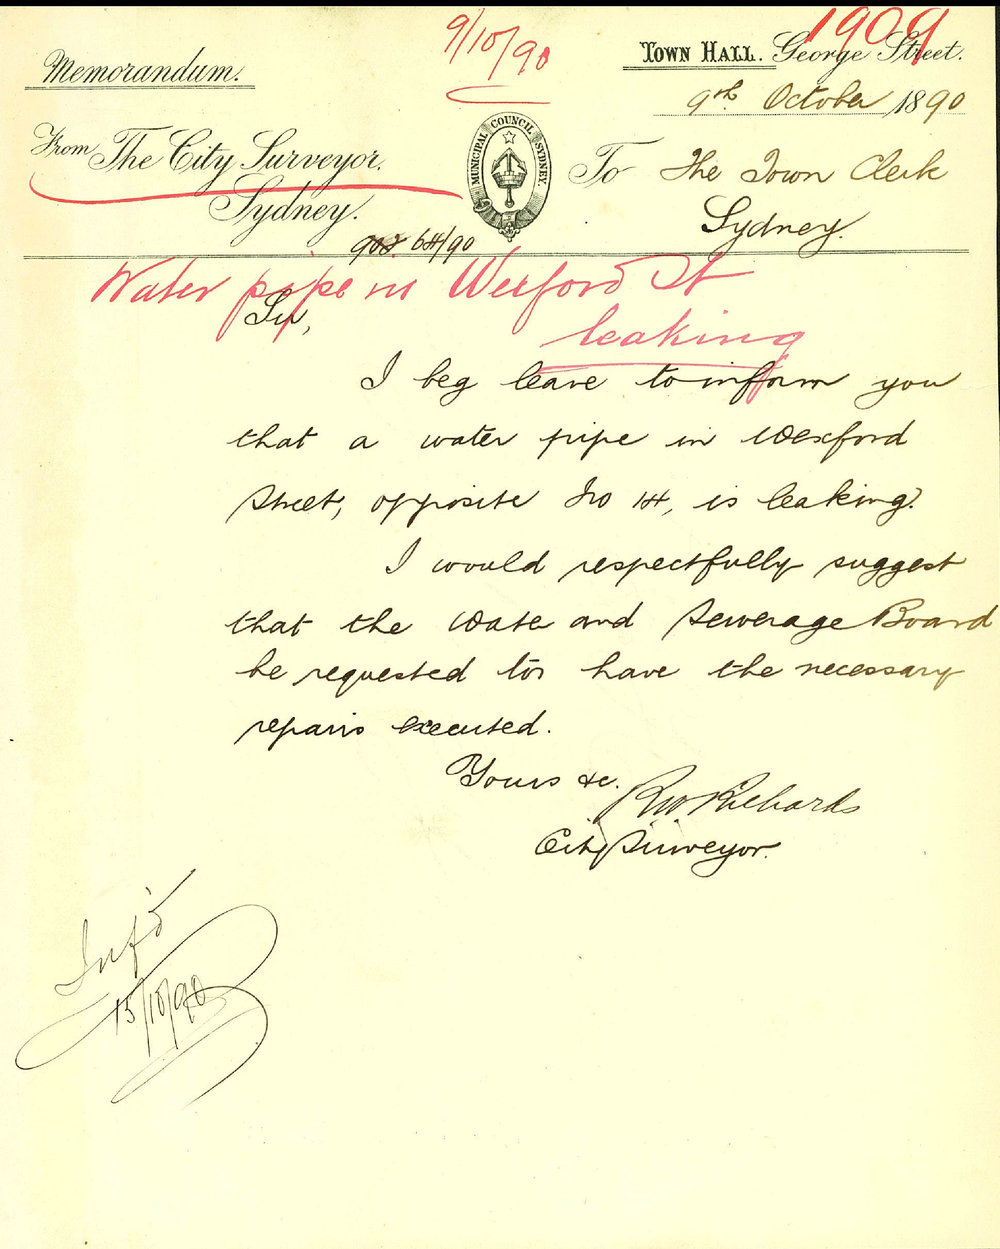 1909
9/10/90
Memorandum.
TOWN HALL. George Street.
9th October 1890
From The City Surveyor.
Sydney.
MUNICIPAL COUNCIL SYDNEY.
To The Town Clerk
Sydney.
64/90
Water pipe in Wexford St
leaking
Sir,
I beg leave to inform you
that a water pipe in Wexford
Street, opposite No 14, is leaking.
I would respectfully suggest
that the Water and Sewerage Board
be requested to have the necessary
repairs executed.
Yours &c.
RW Richards
City Surveyor.
Inf'd
15/10/90